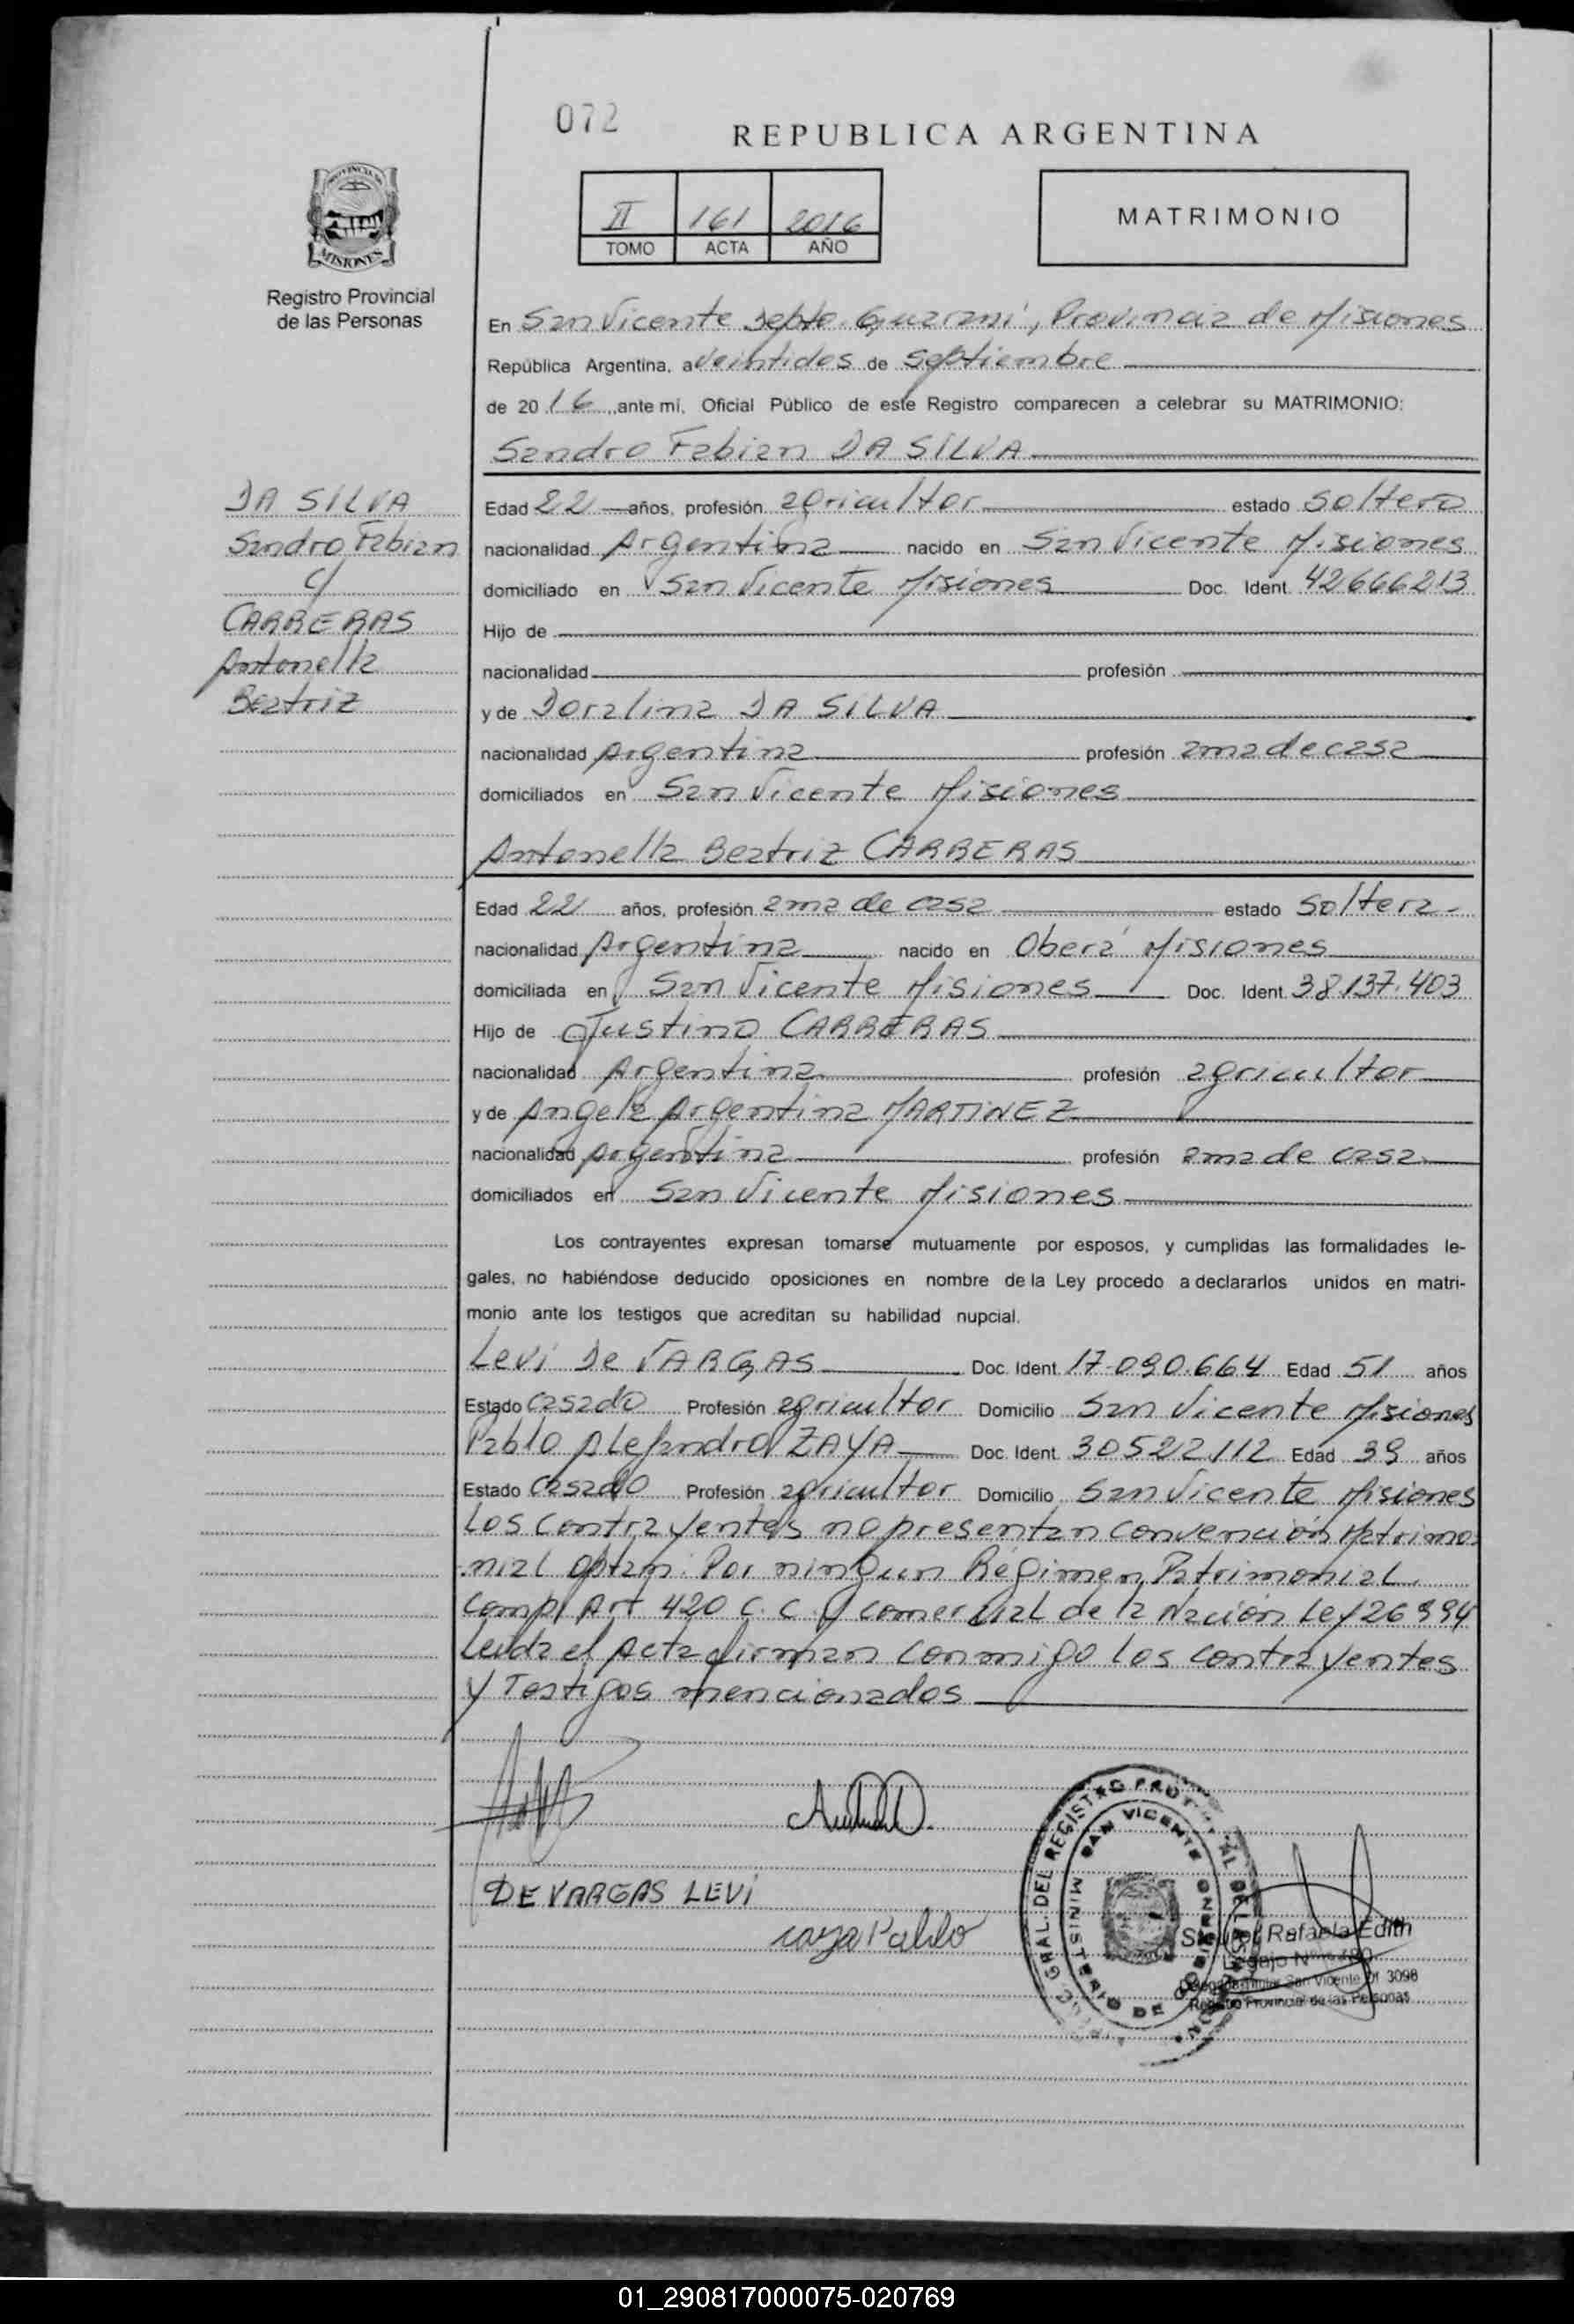 072
REPUBLICA ARGENTINA
II 161 2016
TOMO ACTA AÑO
MATRIMONIO
PROVINCIA DE
MISIONES
Registro Provincial
de las Personas
En San Vicente Depto. Guaraní, Provincia de Misiones
República Argentina, a veintidos de septiembre
de 2016, ante mí, Oficial Público de este Registro comparecen a celebrar su MATRIMONIO:
Sandro Fabian DA SILVA
DA SILVA
Sandro Fabian
c/
CARRERAS
Antonella
Beatriz
Edad 22 años, profesión agricultor estado soltero
nacionalidad Argentina nacido en San Vicente Misiones
domiciliado en San Vicente Misiones Doc. Ident. 42666213
Hijo de
nacionalidad profesión
y de Doralina DA SILVA
nacionalidad Argentina profesión ama de casa
domiciliados en San Vicente Misiones
Antonella Beatriz CARRERAS
Edad 22 años, profesión ama de casa estado soltera
nacionalidad Argentina nacido en Oberá Misiones
domiciliada en San Vicente Misiones Doc. Ident. 38.137.403
Hijo de Justino CARRERAS
nacionalidad Argentina profesión agricultor
y de Angela Argentina MARTINEZ
nacionalidad Argentina profesión ama de casa
domiciliados en San Vicente Misiones
Los contrayentes expresan tomarse mutuamente por esposos, y cumplidas las formalidades le-
gales, no habiéndose deducido oposiciones en nombre de la Ley procedo a declararlos unidos en matri-
monio ante los testigos que acreditan su habilidad nupcial.
Levi De VARGAS Doc. Ident. 17.090.664 Edad 51 años
Estado casado Profesión agricultor Domicilio San Vicente Misiones
Pablo Alejandro ZAYA Doc. Ident. 30522112 Edad 39 años
Estado casado Profesión agricultor Domicilio San Vicente Misiones
Los contrayentes no presentan convención Matrimo-
nial optan: Por ningun Régimen Patrimonial
Comp/ Art 420 C.C. y comercial de la Nación Ley 26994
Leida el Acta firman conmigo los contrayentes
y Testigos mencionados
DE VARGAS LEVI
zaya Pablo
GRAL. DEL REGISTRO
SAN VICENTE
MINISTERIO DE GOBIERNO
Rafaela Edith
San Vicente Of 3098
Registro Provincial de las Personas
01_290817000075-020769